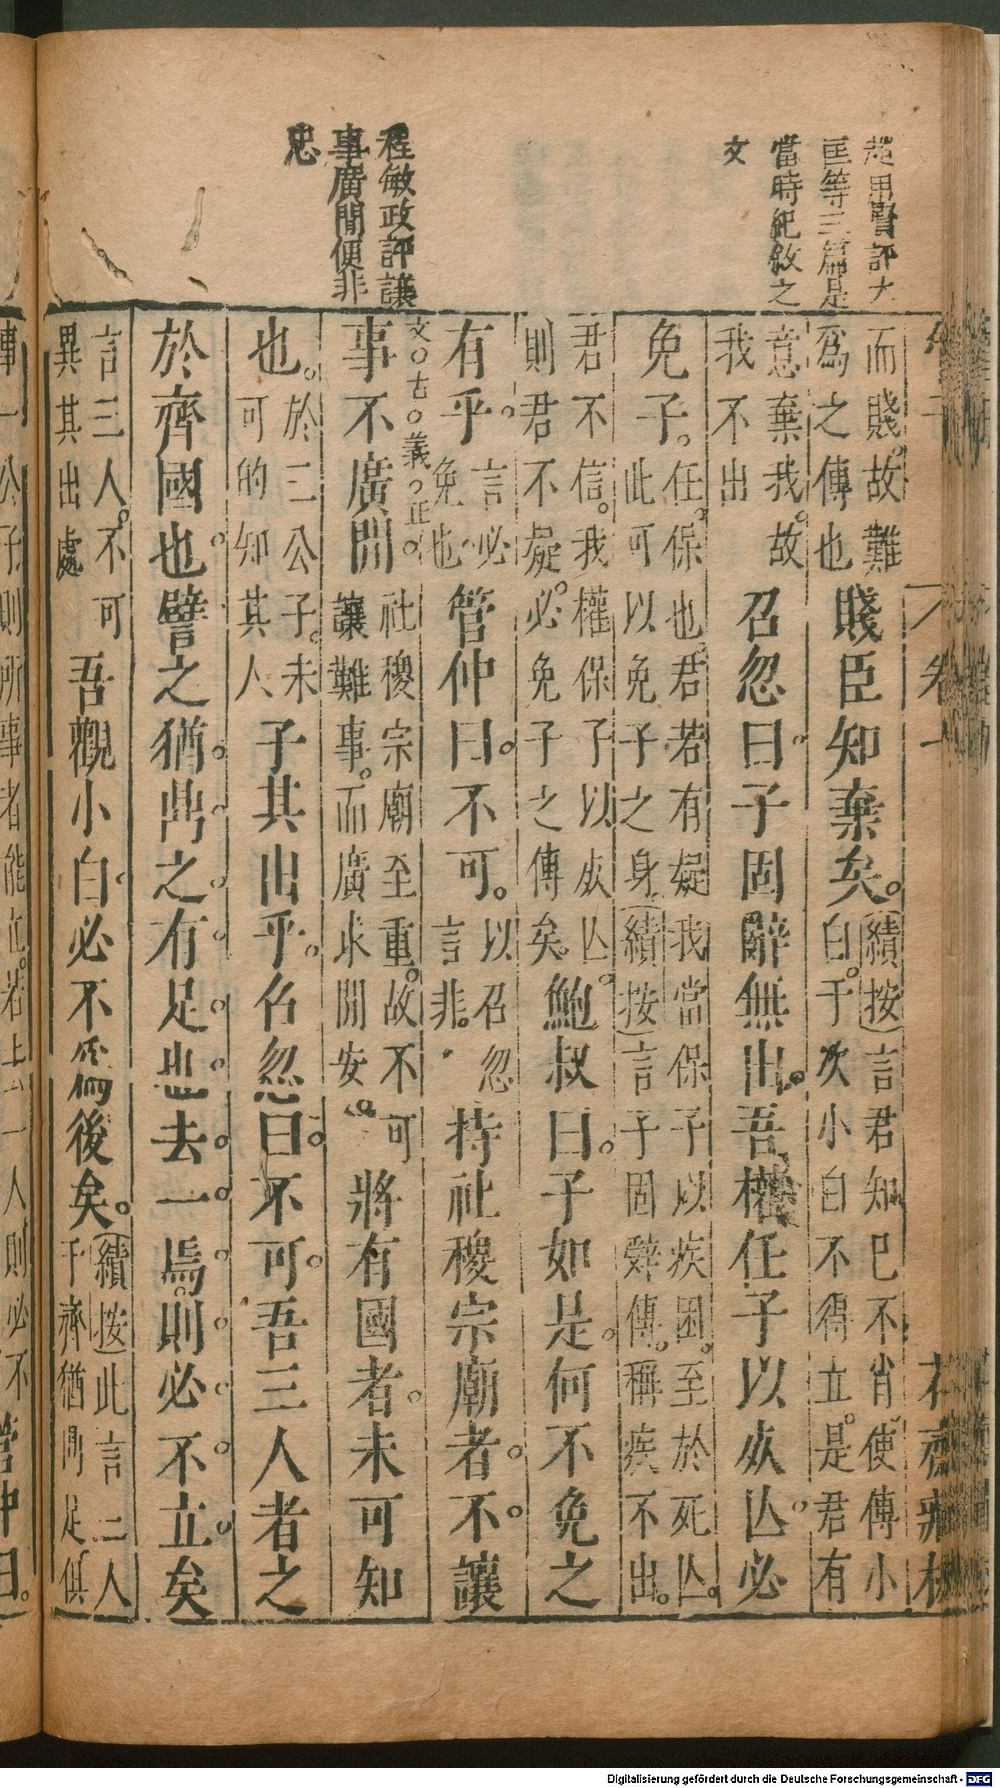 趙用賢評大
匡等三篇是
當時紀敘之
文
程敏政評讓
事廣閒便非
忠
而賤。故難
爲之傳也
賤臣知棄矣。
(續按)言君知已不肖使傳小
白。于次小白不得立。是君有
意棄我。故
我不出
召忽曰。子固辭無出。吾權任子以死亾。必
免子。
任。保也。君若有疑我當保子以疾困。至於死亾。
此可以免子之身(續按)言子固辭傳。稱疾不出。
君不信。我權保子以死亾。
則君不疑。必免子之傳矣。
鮑叔曰。子如是。何不免之
有乎。
言必
免也。
管仲曰。不可。
以召忽
言非。
持社稷宗廟者。不讓
文。古。義。正。
事不廣閒
社稷宗廟至重。故不可
讓難事。而廣求閒安。
將有國者。未可知
也。
於三公子。未
可的知其人
子其出乎。召忽曰。不可。吾三人者之
於齊國也。譬之猶鼎之有足也。去一焉。則必不立矣
言三人。不可
異其出處
吾觀小白必不爲後矣。
(續按)此言三人
于齊猶鼎足俱
Digitalisierung gefördert durch die Deutsche Forschungsgemeinschaft - DFG